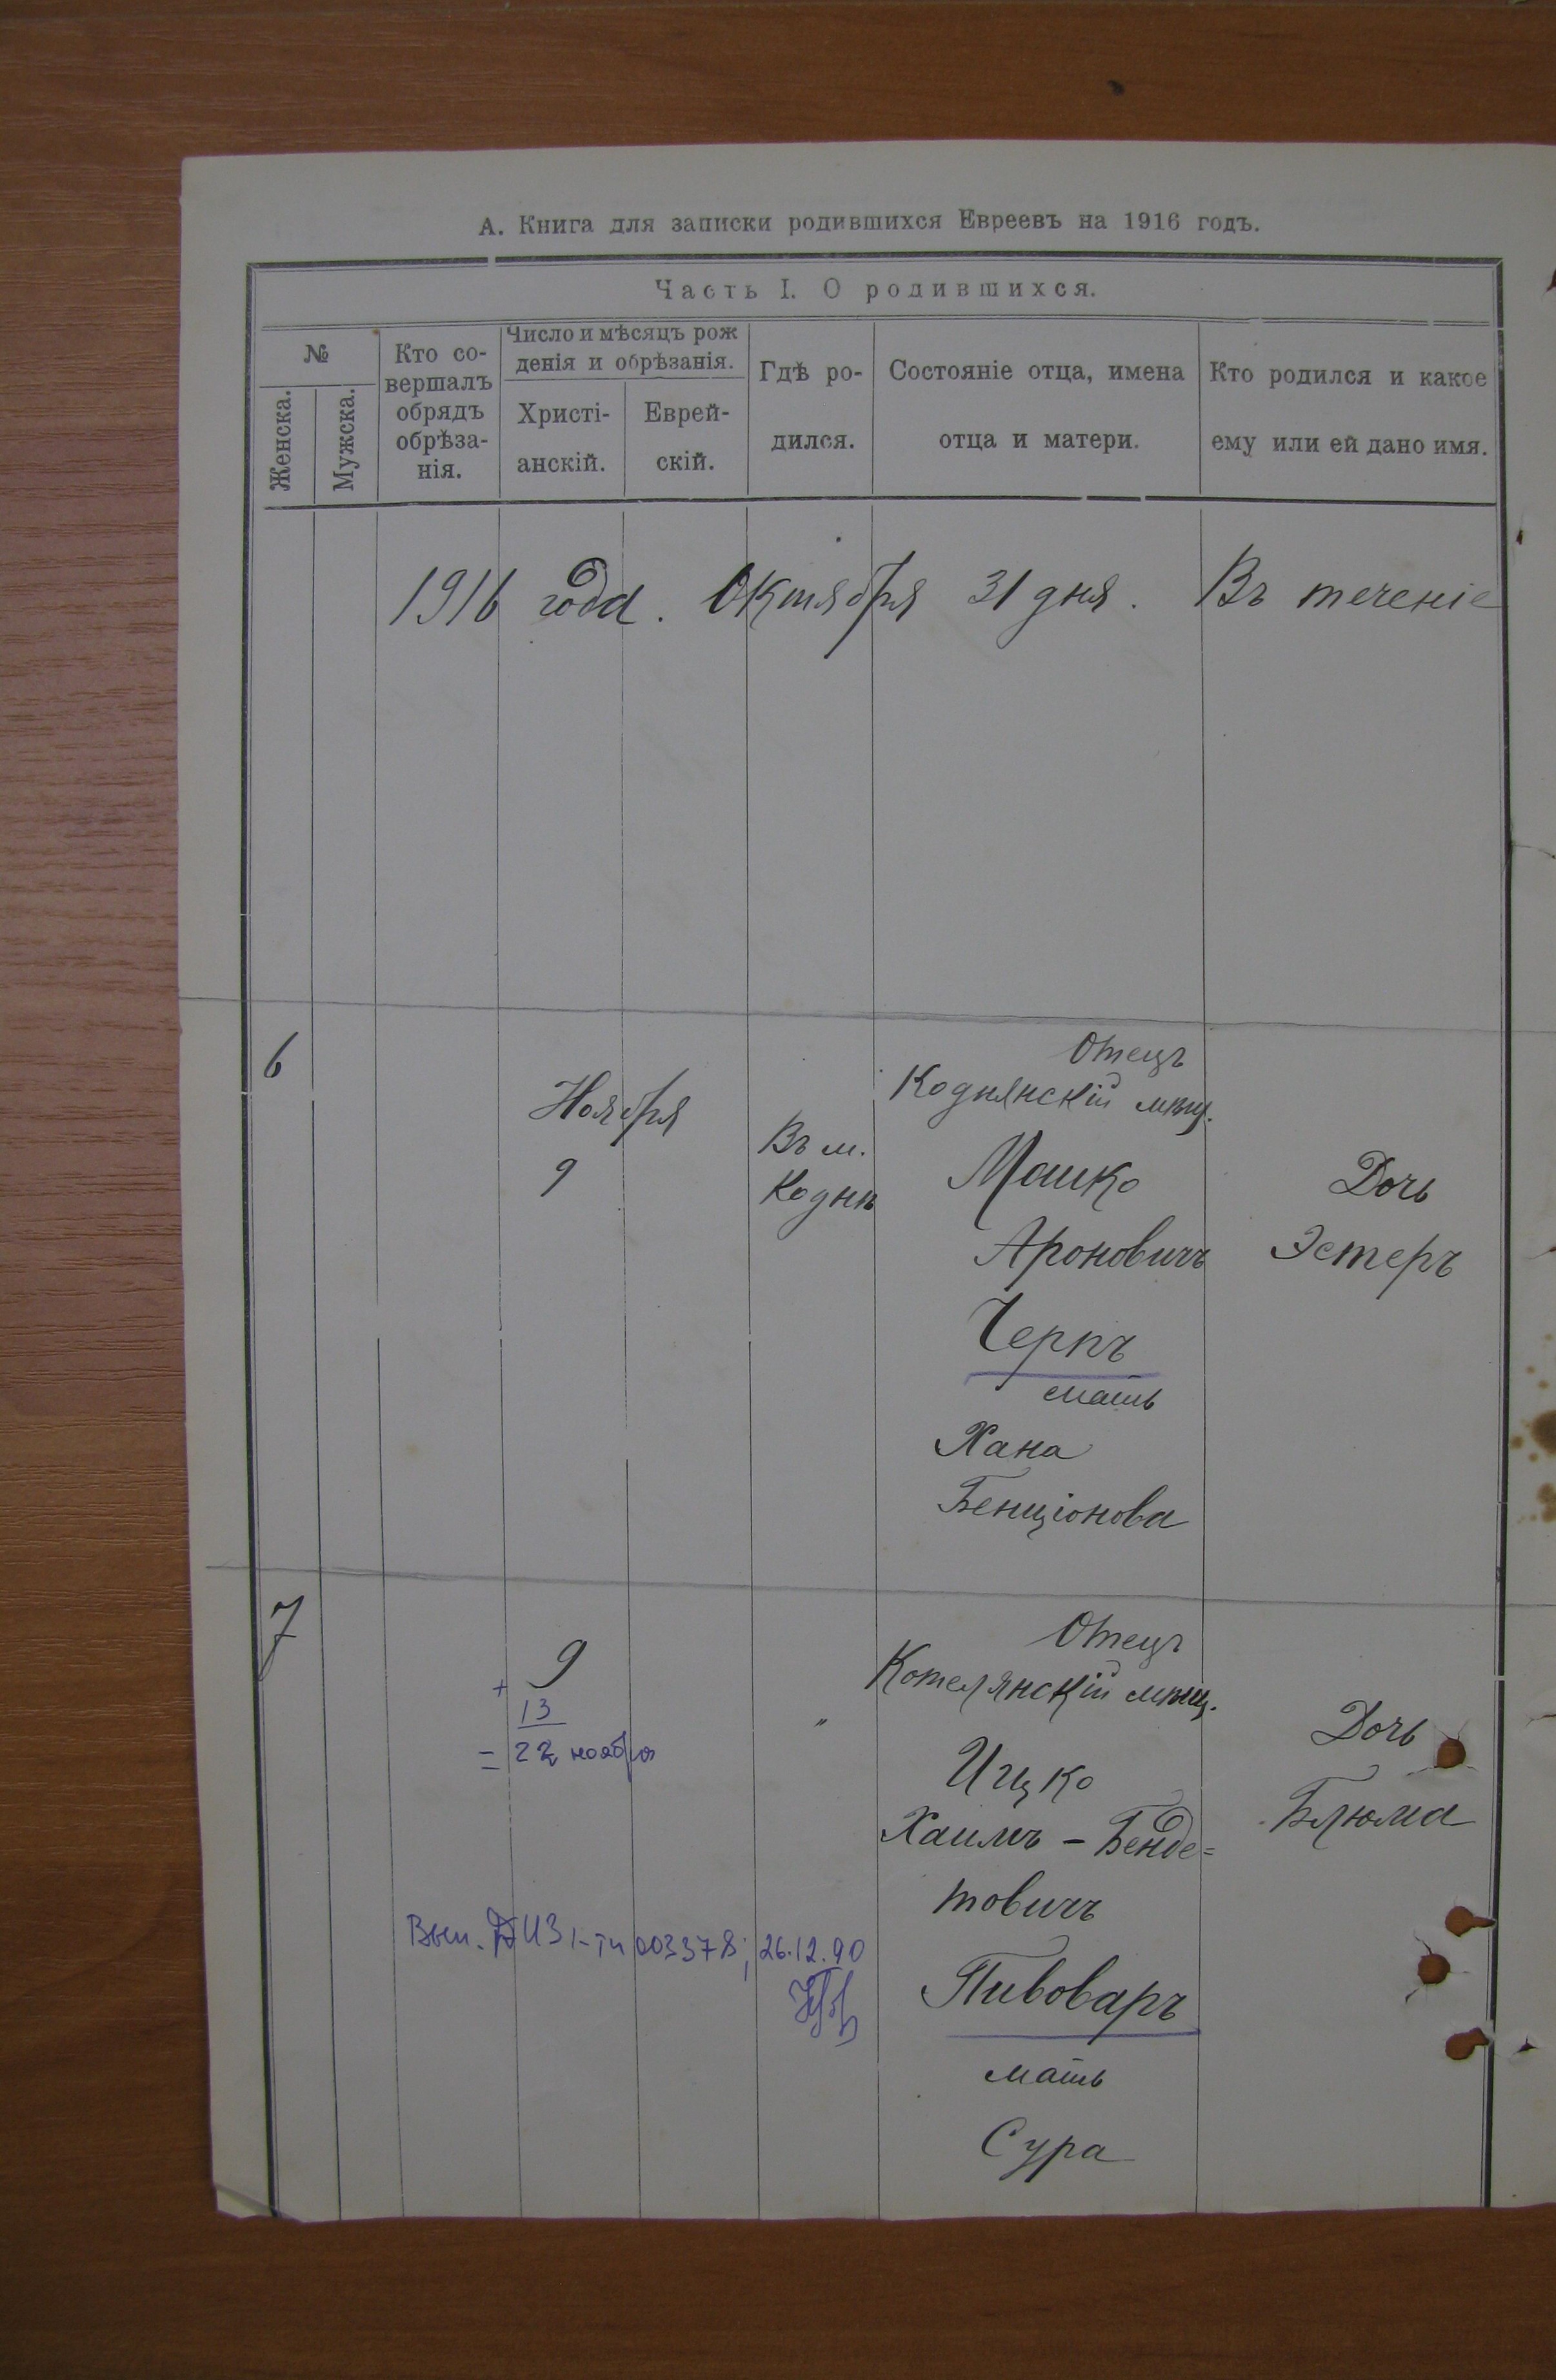 А. Книга для записки родившихся Евреевъ на 1916 годъ.
Часть I. О родившихся.
№
Женска.
Мужска.
Кто со-
вершалъ
обрядъ
обрѣза-
нія.
Число и мѣсяцъ рож
денія и обрѣзанія.
Христі-
анскій.
Еврей-
скій.
Гдѣ ро-
дился.
Состояніе отца, имена
отца и матери.
Кто родился и какое
ему или ей дано имя.
1916 года. Октября 31 дня. Въ теченіе
6
Ноября
9
Въ м.
Коднѣ
Отецъ
Коднянскій мѣщ.
Мошко
Ароновичъ
Черпъ
мать
Хана
Бенціонова
Дочь
Эстеръ
7
9
+
13
= 22 ноября
"
Вып. 1-ТИ 003378; 26.12.90
Отецъ
Котелянскій мѣщ.
Ицко
Хаимъ - Бенде=
товичъ
Пивоваръ
мать
Сура
Дочь
Блюма